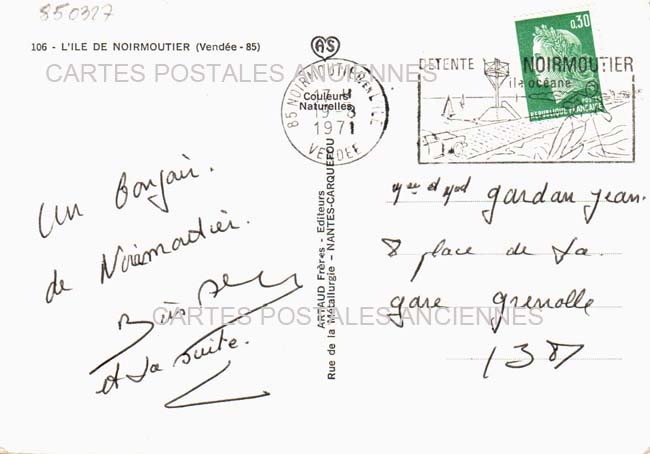 850327
106 - L'ILE DE NOIRMOUTIER (Vendée - 85)
CARTES POSTALES ANCIENNES
AS
Couleurs
Naturelles
85 NOIRMOUTIER EN L'ILE
17 H
19-8
1971
VENDEE
DETENTE NOIRMOUTIER
île océane
0,30
POSTES
REPUBLIQUE FRANCAISE
Un Bonjour.
de Noirmoutier.
et La suite.
ARTAUD Frères - Editeurs
Rue de la Métallurgie - NANTES-CARQUEFOU
gardan jean.
8 place de La.
gare grenolle
(38)
CARTES POSTALES ANCIENNES